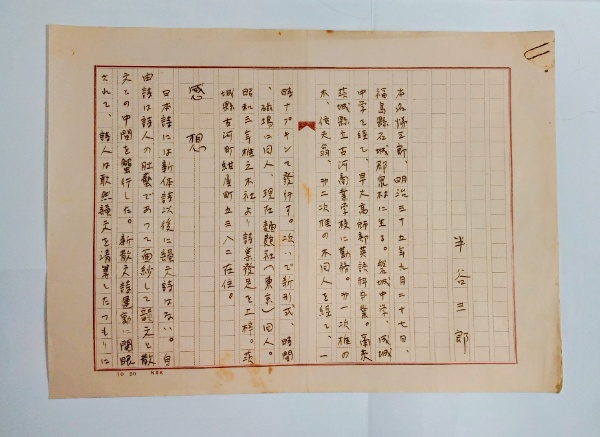 半谷三郎
本名陽三郎、明治三十五年九月二十七日、
福島縣石城郡泉村に生る。磐城中学、成城
中学を経て、早大高師部英語科卒業。
茨城縣立古河商業学校に勤務。第一次椎の
木、倚天翁、第二次椎の木同人を経て、一
時ナプキンを発行す。次いで新形式、時間
、磁場に同人、現在麺麭社(東京)同人。
昭和三年椎之木社より詩集発足を上梓。茨
城縣古河町紺屋町五三八二在住。
感想
日本詩には新体詩以後に韻文詩はない。自
由詩は詩人の肚藝であつて面紗して韻文と散
文との中間を蟹行した。新散文詩運動に開眼
されて、詩人は敢然韻文を清算したつもりに
10 20